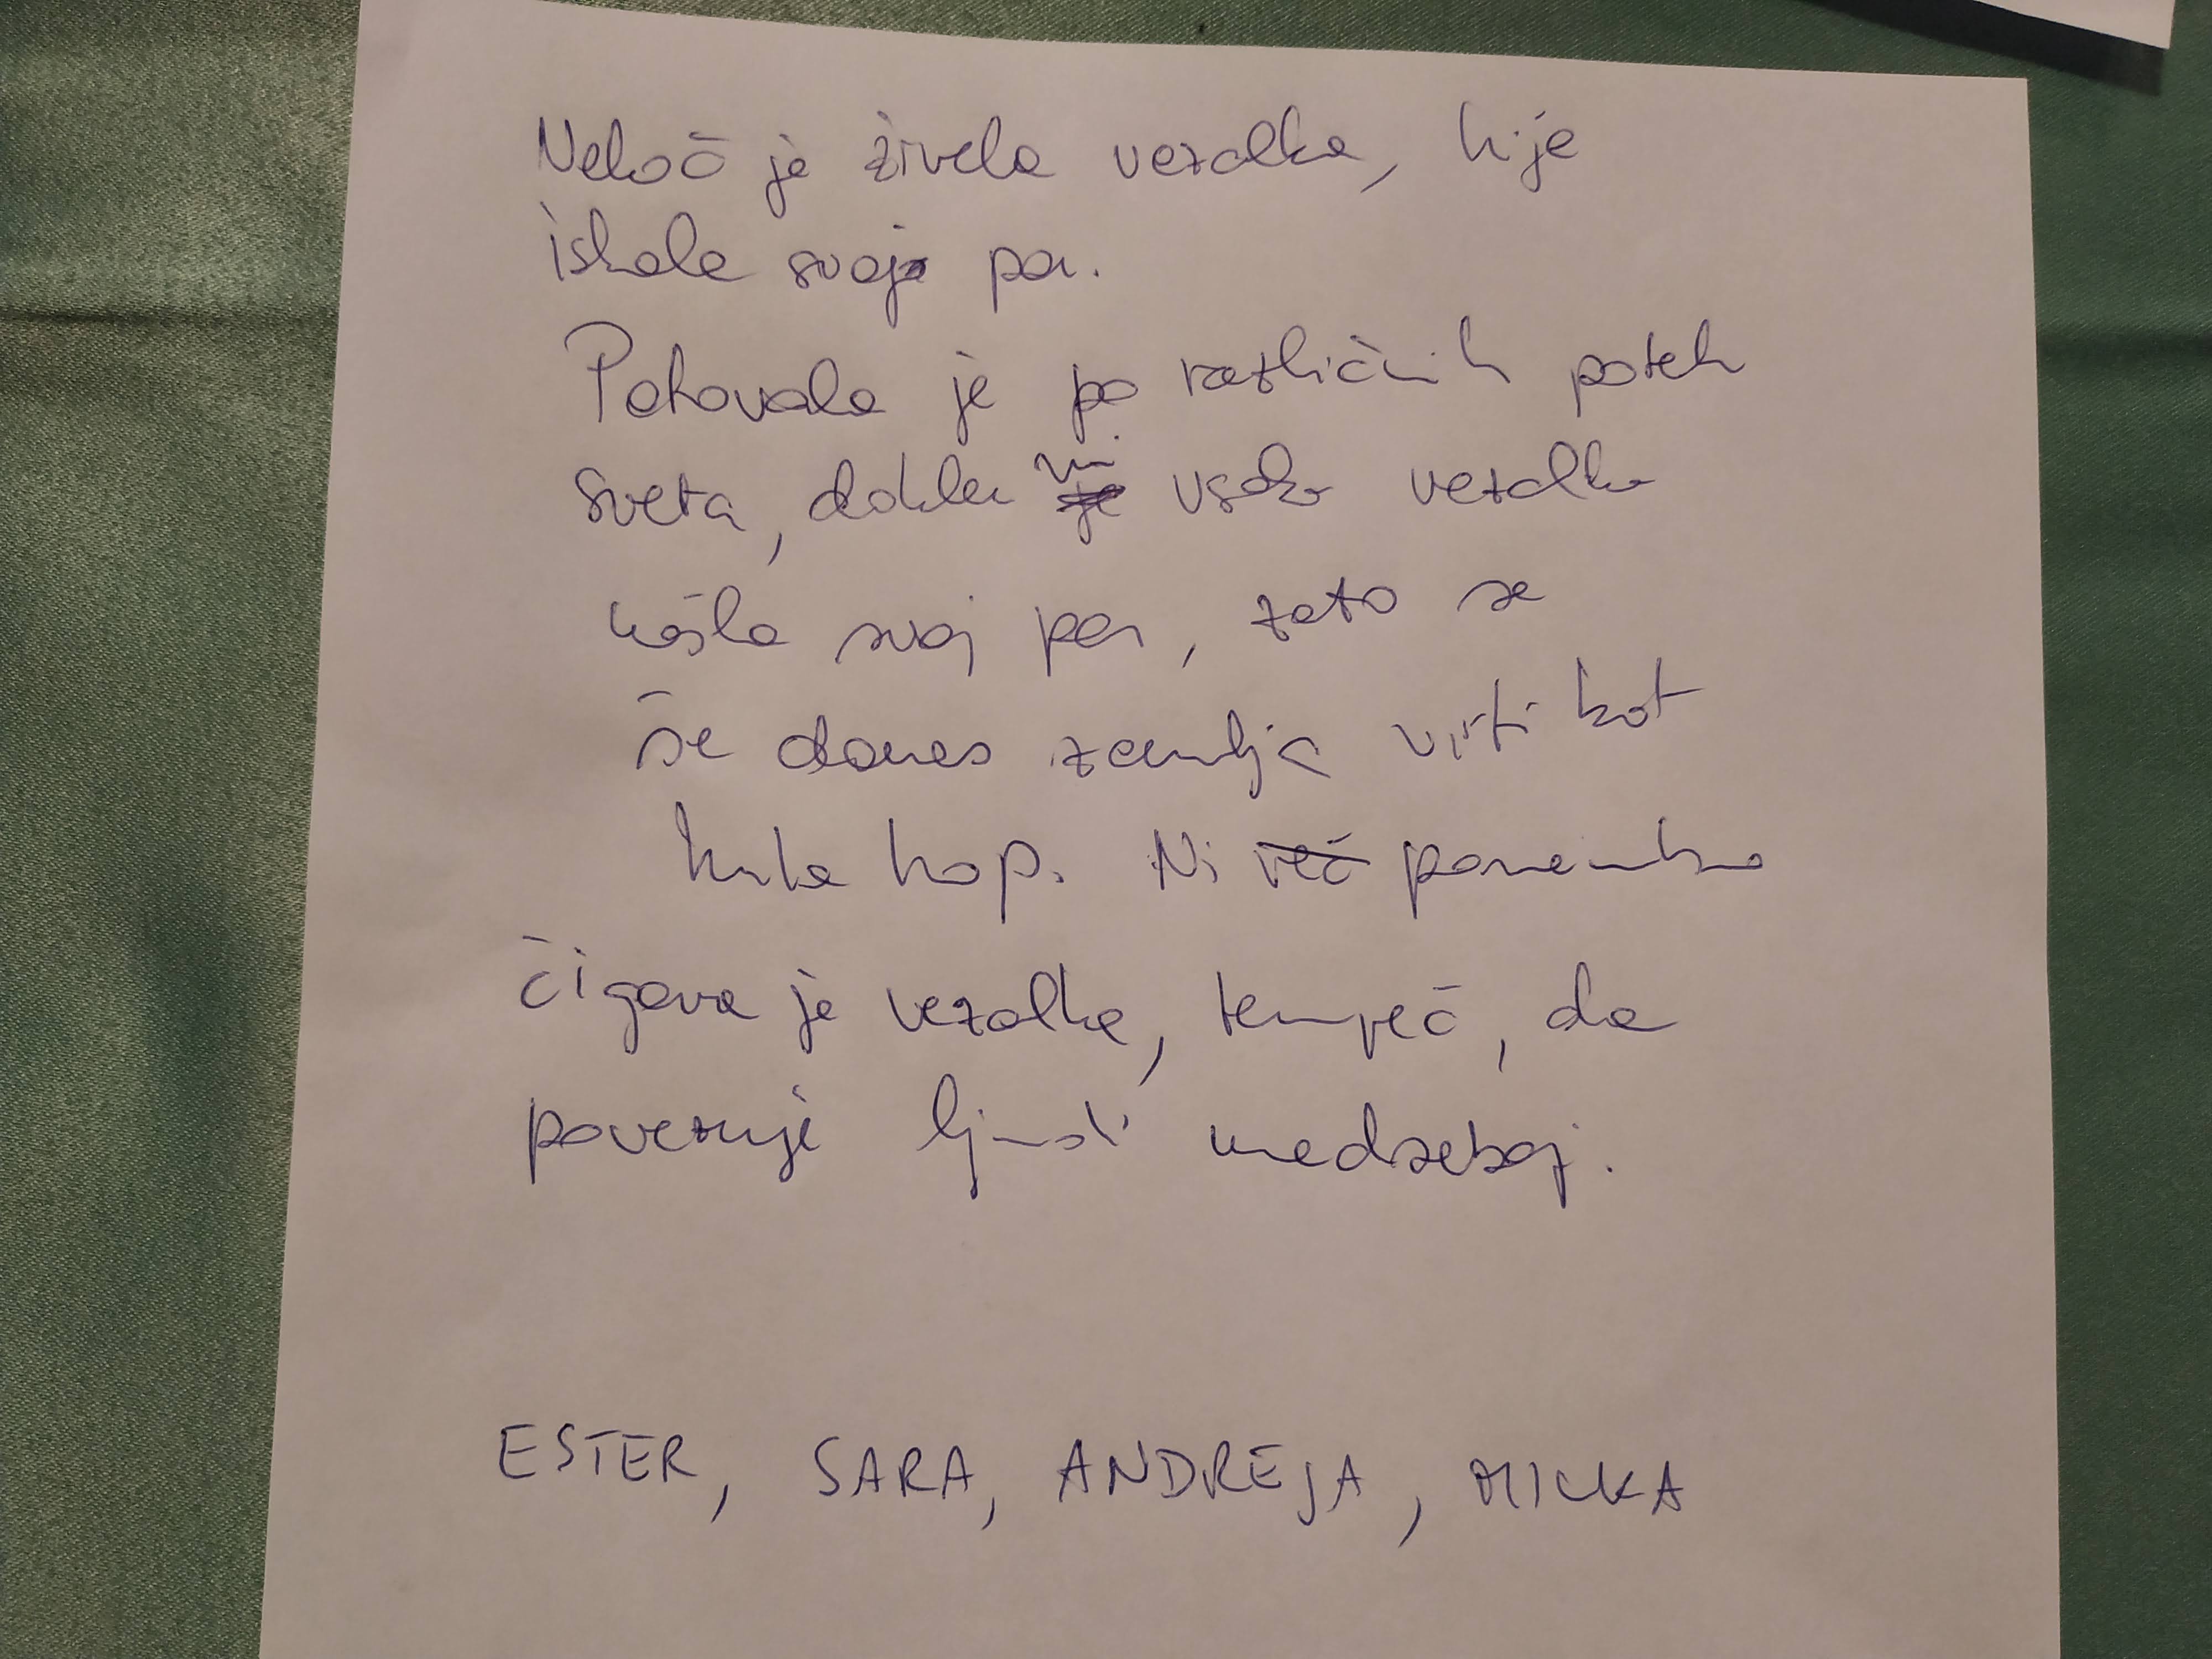 Nekoč je živela vezalka, ki je
iskala svoj par.
Potovala je po različnih poteh
sveta, dokler ni vsaka vezalka
našla svoj par, zato se
še danes zemlja vrti kot
hula hop. Ni več pomembno
čigava je vezalka, temveč, da
povezuje ljudi medseboj.
ESTER, SARA, ANDREJA, MILKA